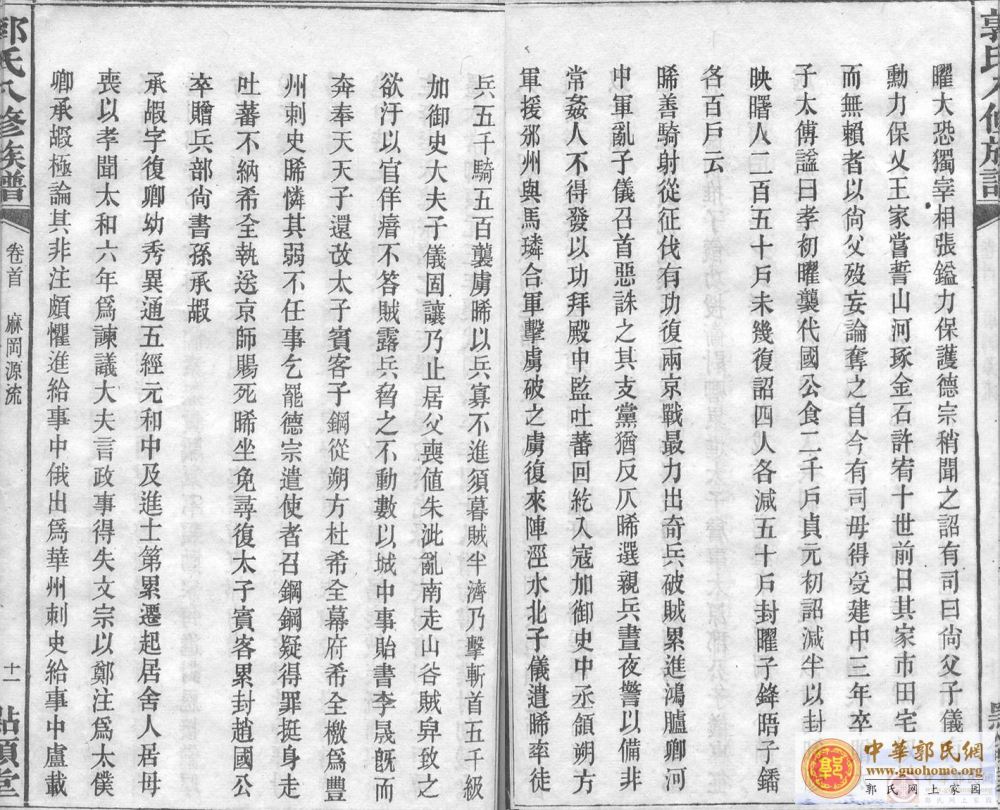 郭氏八修族譜
曜大恐獨宰相張鎰力保護德宗稍聞之詔有司曰尙父子儀
勳力保乂王家嘗誓山河琢金石許宥十世前日其家市田宅
而無賴者以尙父歿妄論奪之自今有司毋得受建中三年卒
子太傅謚曰孝初曜襲代國公食二千戶貞元初詔減半以封
映曙人二百五十戶未幾復詔四人各減五十戶封曜子鋒晤子鐇
各百戶云
晞善騎射從征伐有功復兩京戰最力出奇兵破賊累進鴻臚卿河
中軍亂子儀召首惡誅之其支黨猶反仄晞選親兵晝夜警以備非
常姦人不得發以功拜殿中監吐蕃回紇入寇加御史中丞領朔方
軍援邠州與馬璘合軍擊虜破之虜復來陣涇水北子儀遣晞率徒
兵五千騎五百襲虜晞以兵寡不進須暮賊半濟乃擊斬首五千級
加御史大夫子儀固讓乃止居父喪値朱泚亂南走山谷賊舁致之
欲汙以官佯瘖不答賊露兵脅之不動數以城中事貽書李晟旣而
奔奉天天子還改太子賓客子鋼從朔方杜希全幕府希全檄爲豐
州刺史晞憐其弱不任事乞罷德宗遣使者召鋼鋼疑得罪挺身走
吐蕃不納希全執送京師賜死晞坐免尋復太子賓客累封趙國公
卒贈兵部尙書孫承嘏
承嘏字復卿幼秀異通五經元和中及進士第累遷起居舍人居母
喪以孝聞太和六年爲諫議大夫言政事得失文宗以鄭注爲太僕
卿承嘏極論其非注頗懼進給事中俄出爲華州刺史給事中盧載
郭氏八修族譜
卷首 麻岡源流
十一
點頭堂
中華郭氏網
www.guohome.org
郭氏網上家園